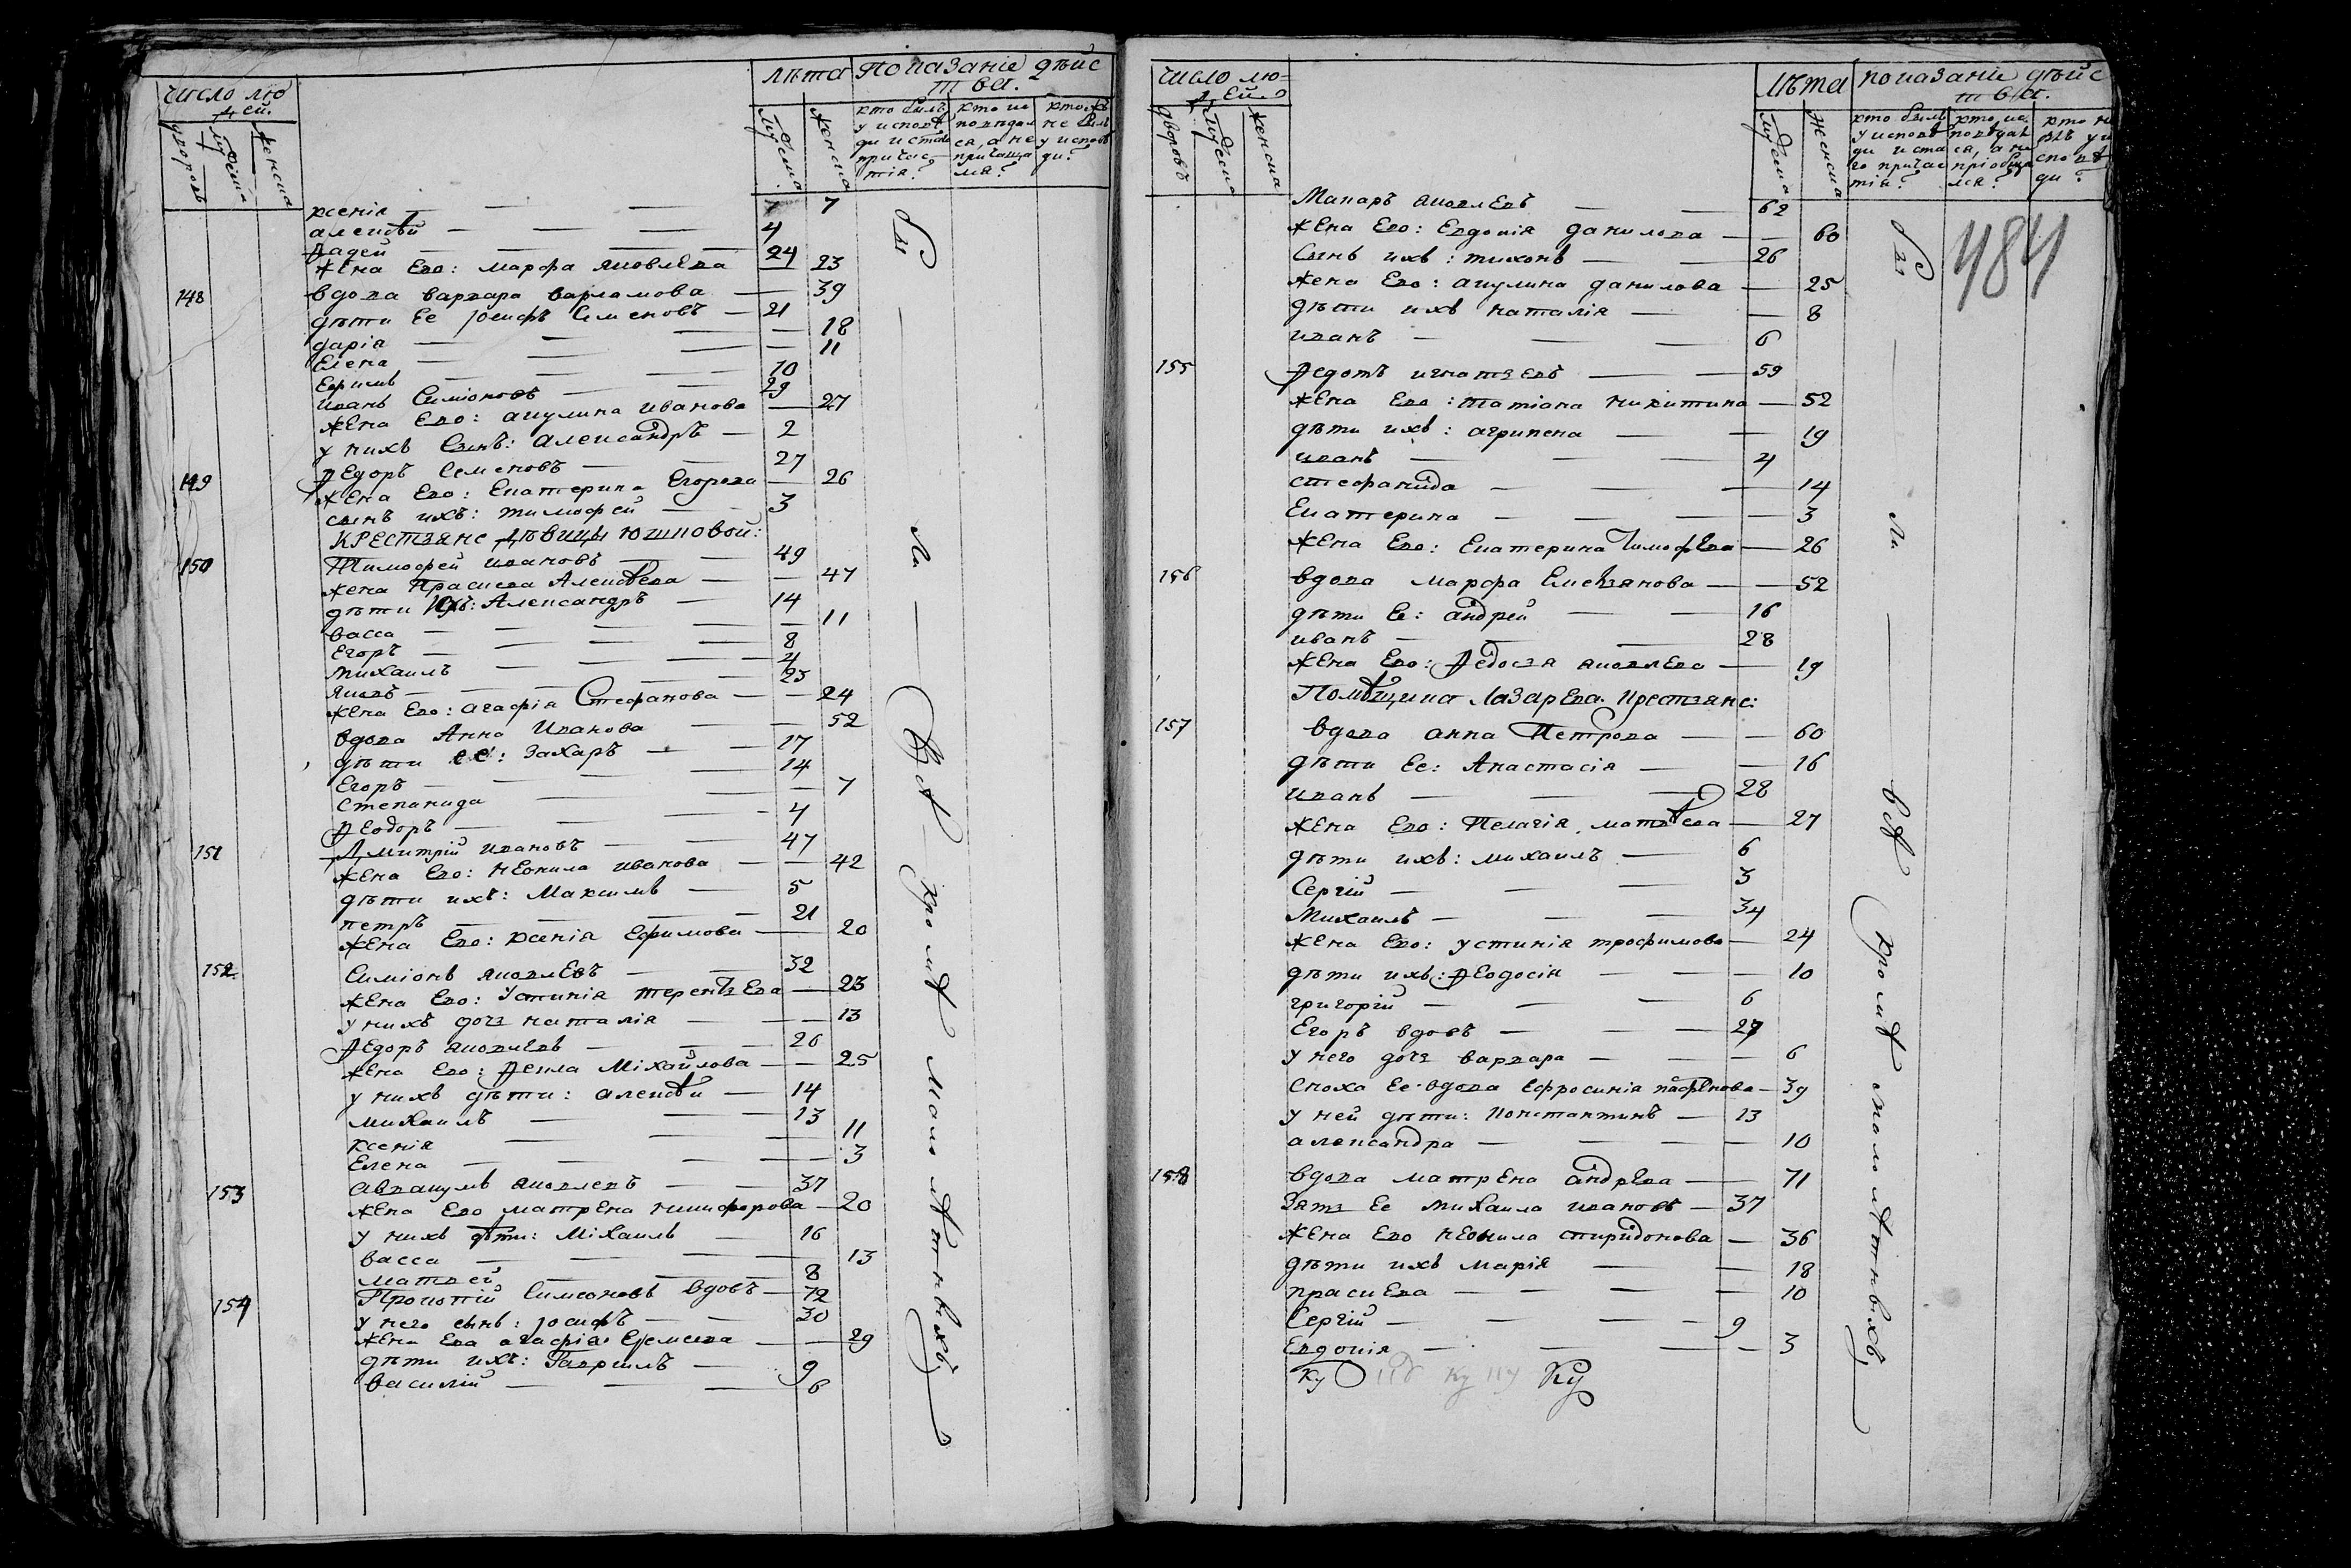 число лю
дей.
дворовъ
мужеска
женска
лѣта
мужеска
женска
Показаніе дѣйс
тва.
кто былъ
у исповѣ
ди и ста
причас
тія?
кто ис
поведал
ся, а не
причаща
лся?
не былъ
у исповѣ
ди?
ксенія — — — 7
алексѣй — — — 4
Фадей — — — 24
жена Его: марфа яковлева — 23
148 вдова варвара варламова — 39
дѣти Ее Іосифъ Семеновъ — 21
дарія — — — 18
Елена — — — 11
Ефимъ — — — 10
иванъ Симіоновъ — — 29
жена Его: акулина иванова — 27
у нихъ Сынъ: александръ — 2
149 Федоръ Семеновъ — — 27
жена Его: Екатерина Егорова — 26
сынъ ихъ: тимофей — — 3
КРЕСТЬЯНЕ дѣвицы юшковой:
150 Тимофей ивановъ — — 49
жена Прасковья Алексѣева — — 47
дѣти ихъ: Александръ — 14
васса — — — — 11
Егоръ — — — 8
михаилъ — — — 4
яковъ — — — 25
жена Его: агафія Стефанова — — 24
вдова Анна Иванова — — 52
дѣти ее: захаръ — — 17
Егоръ — — — 14
Степанида — — — 7
Феодоръ — — — 4
151 Дмитрій ивановъ — — 47
жена Его: неонила иванова — — 42
дѣти ихъ: Максимъ — 5
петръ — — — 21
жена Его: ксенія ефимова — 20
152 Симіонъ яковлевъ — — 32
жена Его: Устинія терентьева — 23
у нихъ дочь наталія — — — 13
Федоръ яковлевъ — — — 26
жена Его: Фекла Міхайлова — — 25
у нихъ дѣти: алексѣй — 14
михаилъ — — — 13
ксенія — — — 11
Елена — — — — — 3
153 Аввакумъ яковлевъ — — 37
жена Его матрена никифорова — 20
у нихъ дѣти: Міхаилъ — 16
васса — — — — 13
матвей — — — 8
154 Прокопій Симеоновъ вдовъ — 72
у него сынъ: Іосифъ — — 30
жена Его агафія Еремеева — — 29
дѣти ихъ: Гавриилъ — 9
василій — — — 6
бы — ли — всѣ кромѣ малолѣтнихъ
число лю=
дей.
дворовъ
мужеска
женска
лѣта
мужеска
женска
показаніе дѣйс
тва.
кто былъ
у исповѣ
ди и ста
го причас
тія?
кто ис
поведал
ся, а не
пріобща
лся?
кто не
былъ у и
сповѣ
ди?
484
Макаръ яковлевъ — — 62
жена Его: Евдокія данилова — — 60
Сынъ ихъ: тихонъ — — 26
жена Его: акулина данилова — 25
дѣти ихъ наталія — — 8
иванъ — — — 6
155 Федотъ игнатьевъ — — 59
жена Его: татіана никитина — 52
дѣти ихъ: агрипена — — 19
иванъ — — — 4
стефанида — — — 14
Екатерина — — — 3
жена Его: Екатерина Тимофева — 26
156 вдова марфа Емельянова — — 52
дѣти Ее: андрей — — 16
иванъ — — — 28
жена Его: Федосья яковлева — — 19
Помѣщика Лазарева крестьяне:
157 вдова анна Петрова — — 60
дѣти Ее: Анастасія — — 16
иванъ — — — 28
жена Его: Пелагія матвѣева — 27
дѣти ихъ: михаилъ — 6
Сергій — — — 3
Михаилъ — — — 34
жена Его: устинія трофимова — 24
дѣти ихъ: Феодосія — — — 10
григорій — — — 6
Егоръ вдовъ — — — 27
у него дочь варвара — — — 6
сноха Ее вдова Ефросинія — 39
у ней дѣти: константинъ — 13
александра — — — — 10
158 вдова матрена андрева — — 71
Зять Ее михаила ивановъ — 37
жена Его неонила спиридонова — 36
дѣти ихъ марія — — 18
прасковья — — — — 10
Сергій — — — 9
Евдокія — — — — 3
бы — ли — всѣ кромѣ малолѣтнихъ